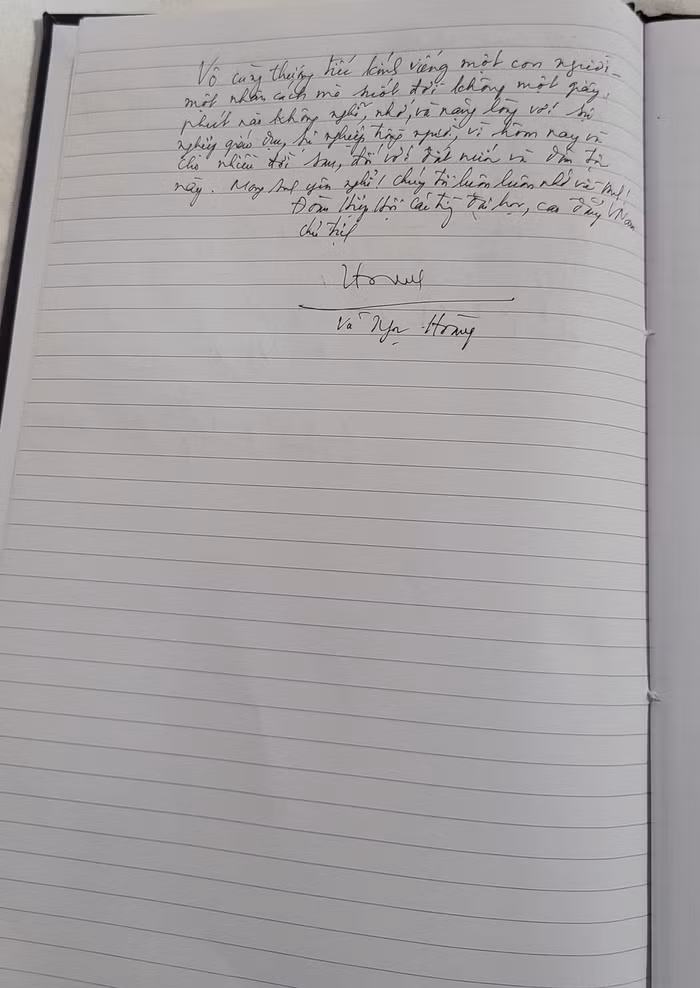 Vô cùng thương tiếc kính viếng một con người -
một nhân cách mà suốt đời không một giây,
phút nào không nghĩ, nhớ, và nặng lòng với sự
nghiệp giáo dục, sự nghiệp trồng người, vì hôm nay và
cho nhiều đời sau, đối với đất nước và dân tộc
này. Mong Anh yên nghỉ! Chúng tôi luôn luôn nhớ về Anh!
Đoàn Hiệp Hội các trg đại học, cao đẳng VNam
chủ tịch
Vũ Ngọc Hoàng